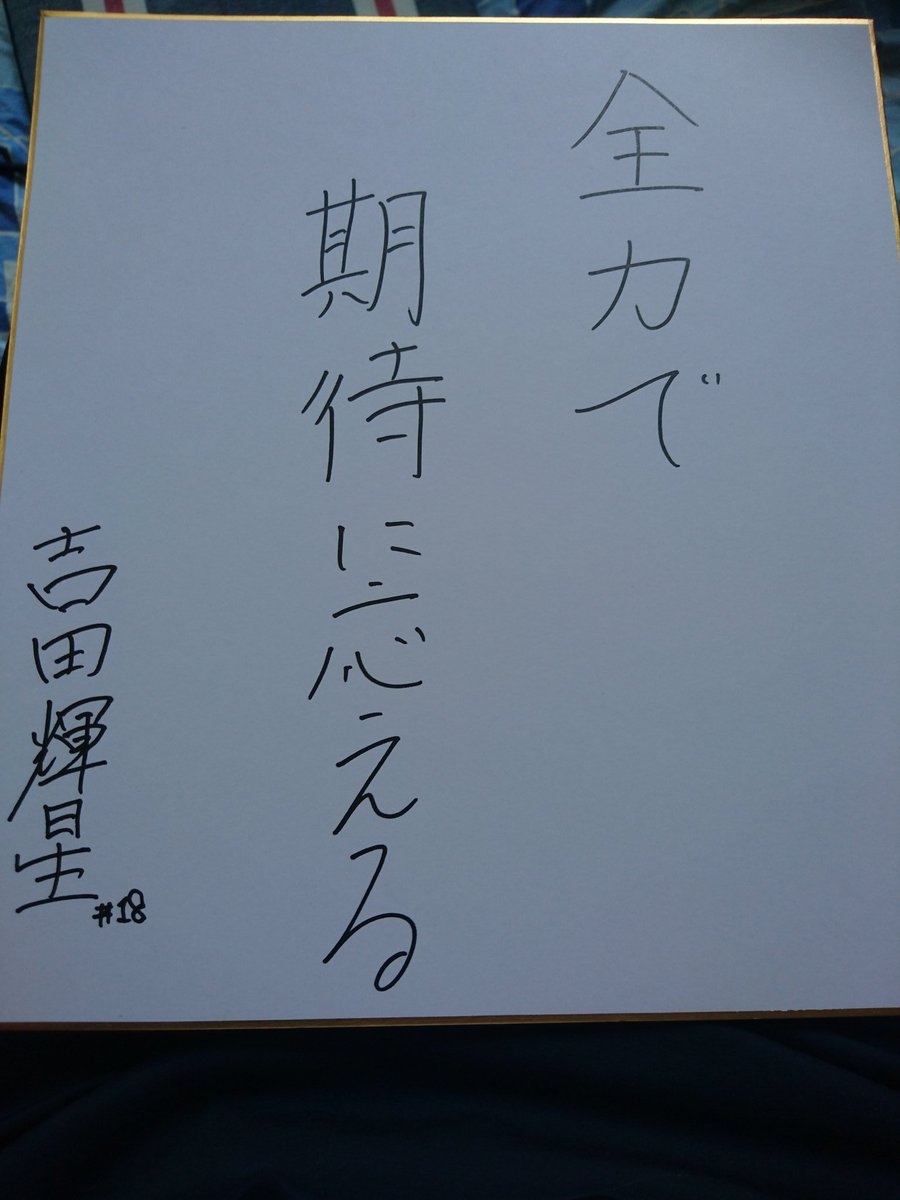 全力で
期待に応える
吉田輝星
#18